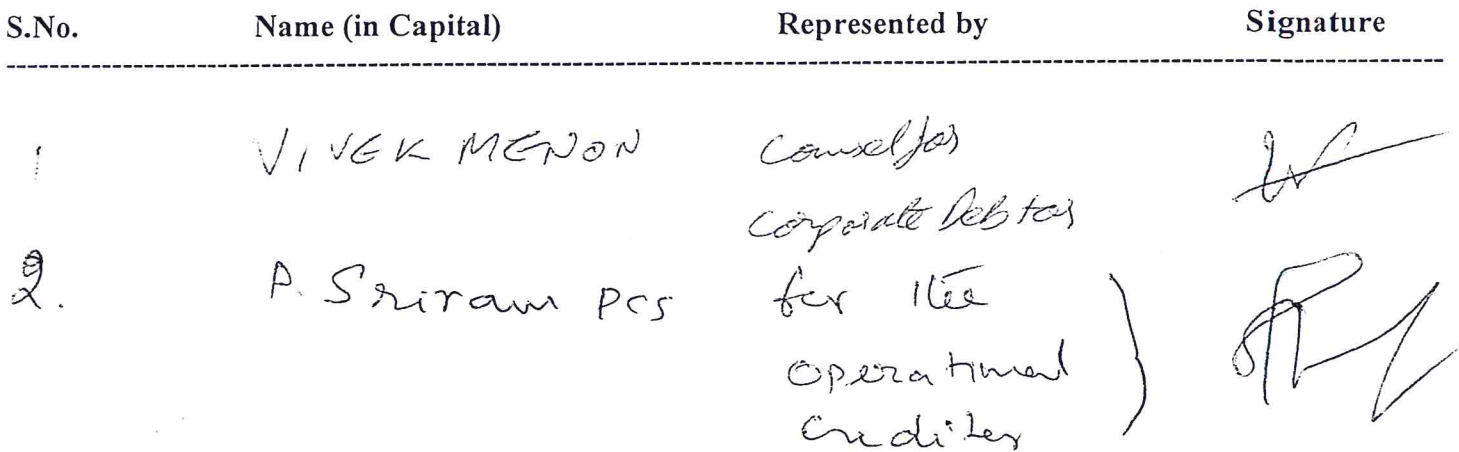 S.No. Name (in Capital) Represented by Signature
1 VIVEK MENON Counsel for
Corporate Debtor
2. P. Sriram PCS for the
Operational
Creditor